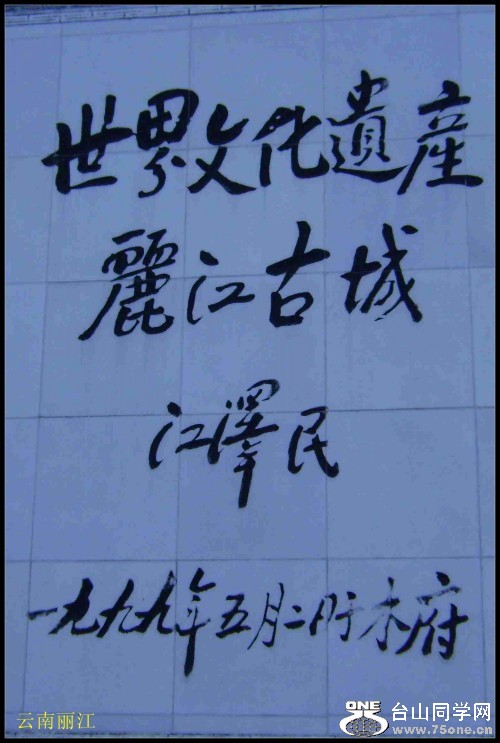 世界文化遺産
麗江古城
江澤民
一九九九年五月二日于木府
云南丽江
ONE
台山同学网
www.75one.cn